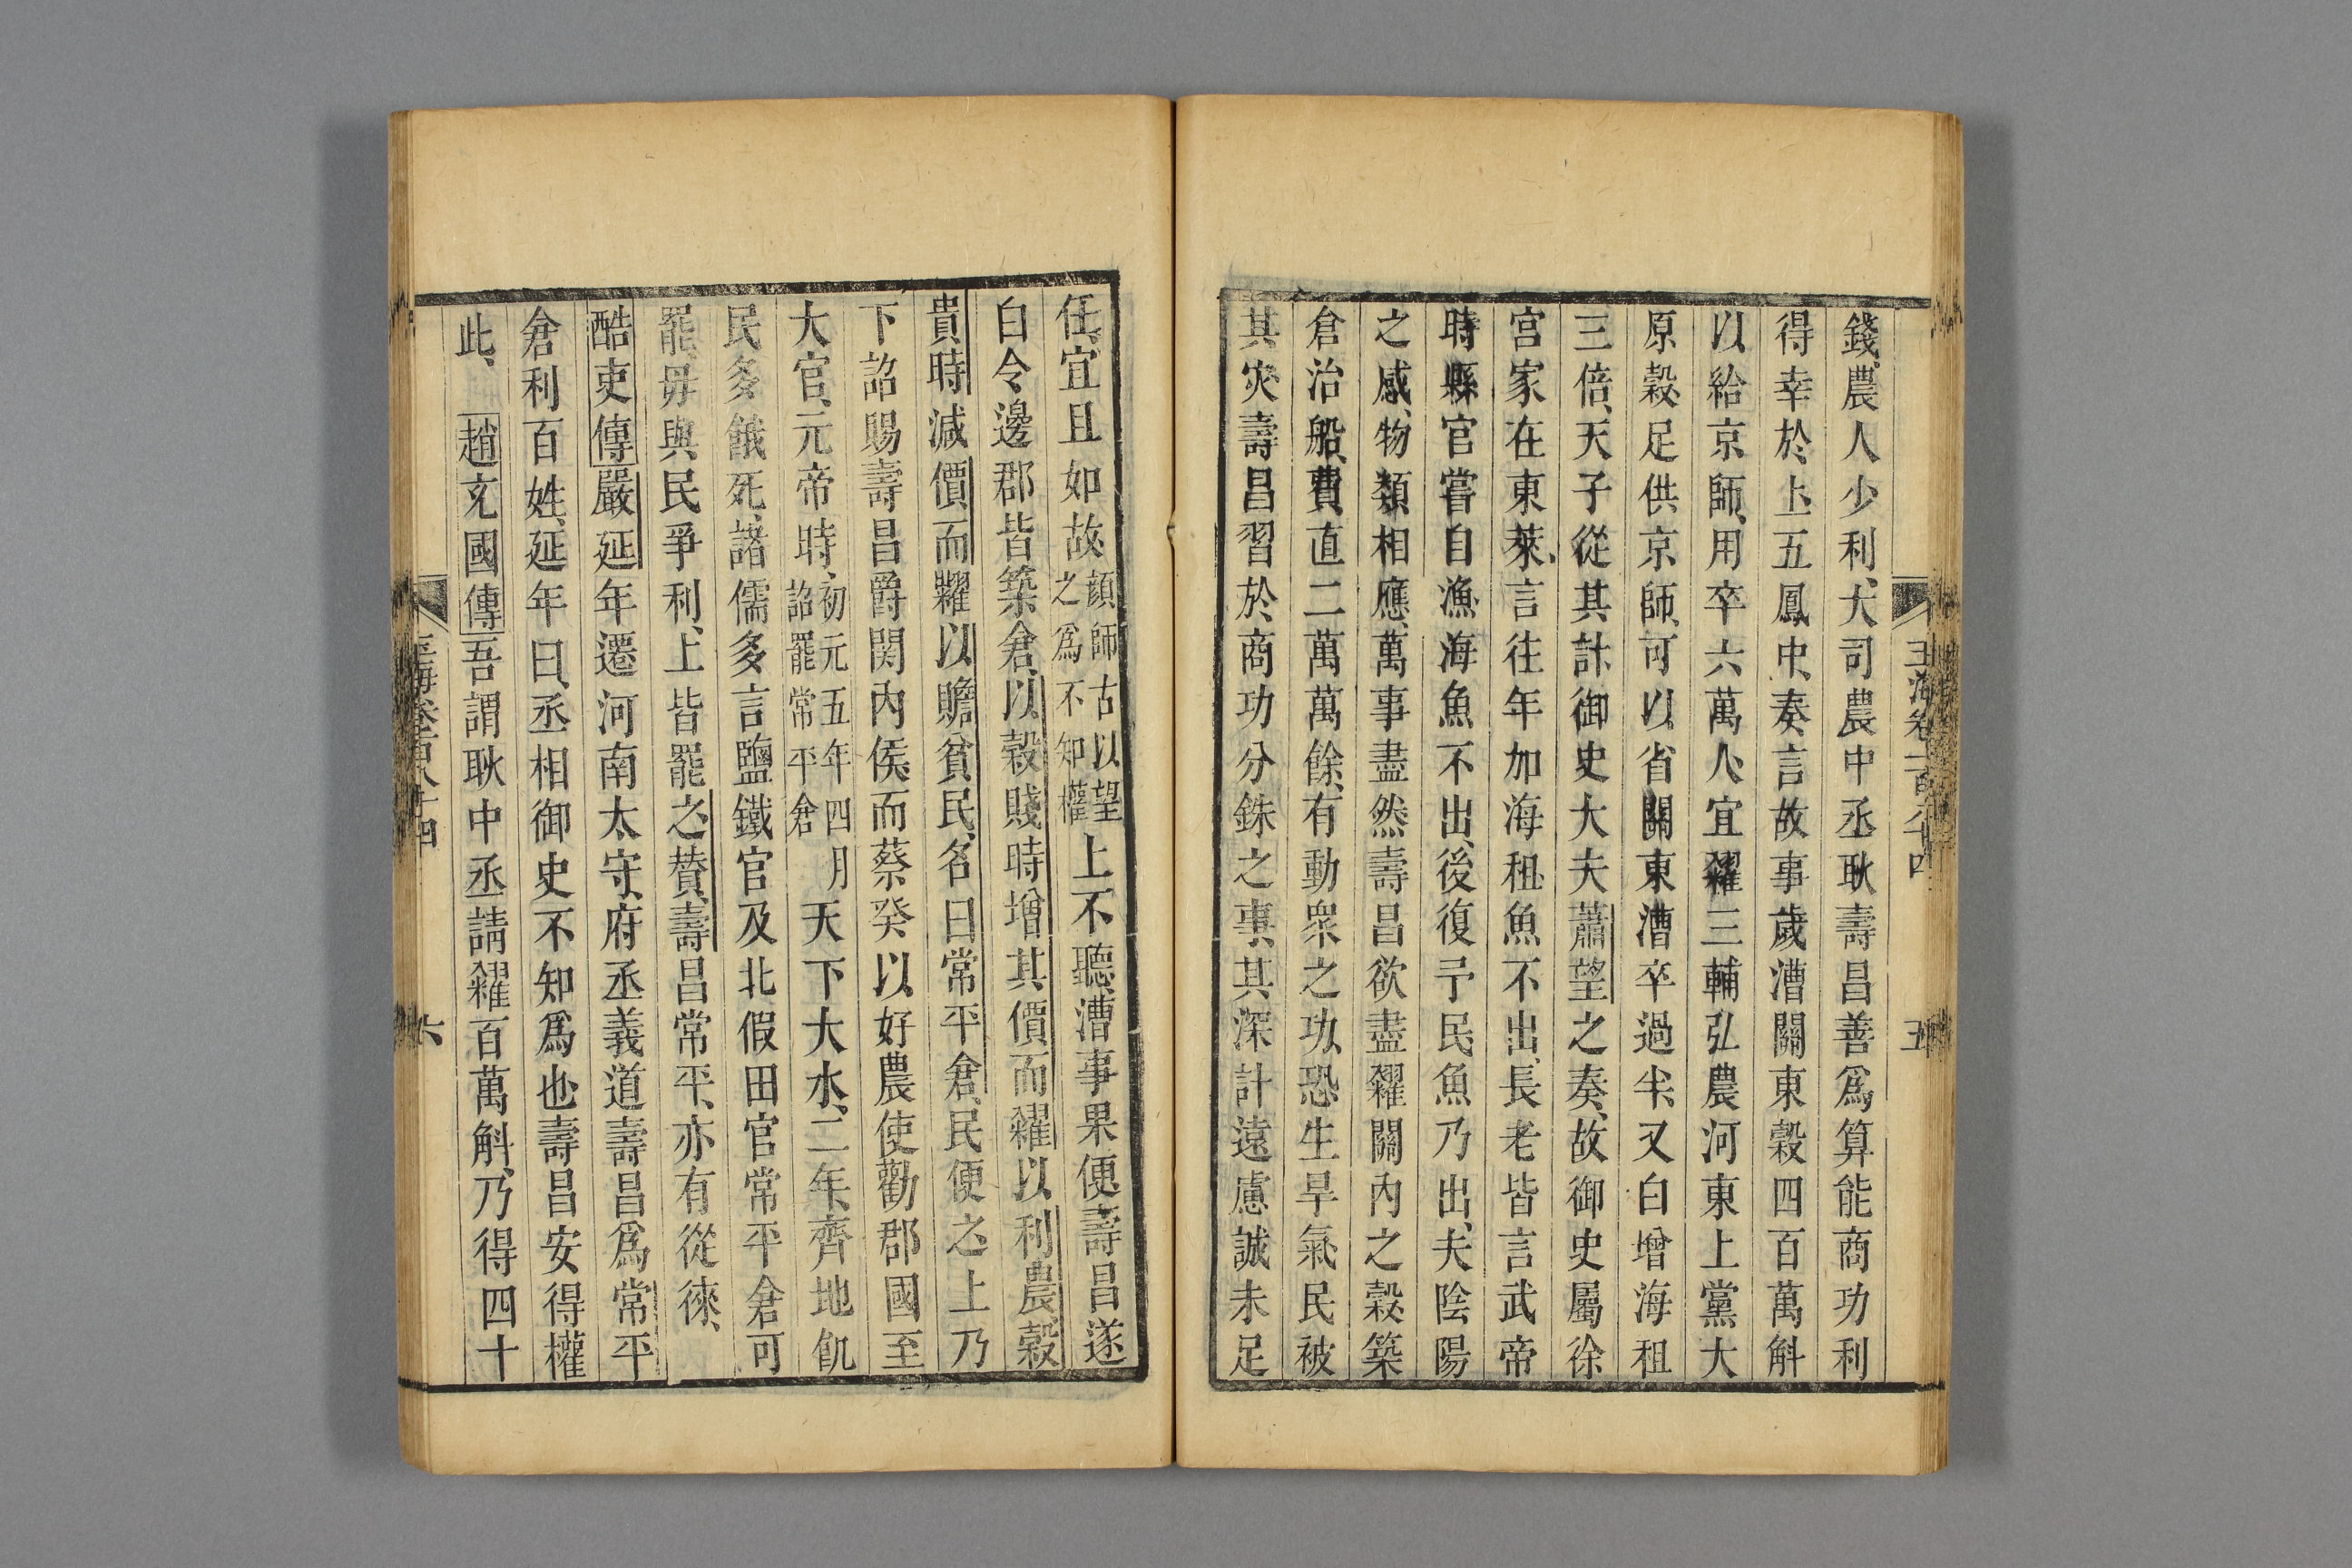 玉海卷一百八十四
五
錢、農人少利、大司農中丞耿壽昌善爲算能商功利
得幸於上、五鳳中、奏言故事歲漕關東穀四百萬斛
以給京師、用卒六萬人、宜糴三輔弘農河東上黨大
原穀足供京師、可以省關東漕卒過半、又白增海租
三倍、天子從其計御史大夫蕭望之奏、故御史屬徐
宮家在東萊、言往年加海租魚不出、長老皆言武帝
時縣官嘗自漁海魚不出、後復予民魚乃出、夫陰陽
之感、物類相應、萬事盡然壽昌欲盡糴關內之穀築
倉治船、費直二萬萬餘、有動衆之功、恐生旱氣民被
其灾壽昌習於商功分銖之事、其深計遠慮誠未足
任、宜且如故、顏師古以望之爲不知權上不聽漕事果便壽昌遂
白令邊郡皆築倉、以穀賤時增其價而糴以利農、穀
貴時減價而糶以贍貧民、名曰常平倉、民便之、上乃
下詔賜壽昌爵関內侯而蔡癸以好農使勸郡國至
大官、元帝時、初元五年四月詔罷常平倉天下大水、二年、齊地飢
民多餓死、諸儒多言鹽鐵官及北假田官常平倉可
罷、毋與民爭利、上皆罷之、賛壽昌常平、亦有從徠、
酷吏傳嚴延年遷河南太守、府丞義道壽昌爲常平
倉利百姓、延年曰、丞相御史不知爲也、壽昌安得權
此、趙充國傳吾謂耿中丞請糴百萬斛、乃得四十
玉海卷一百八十四
六